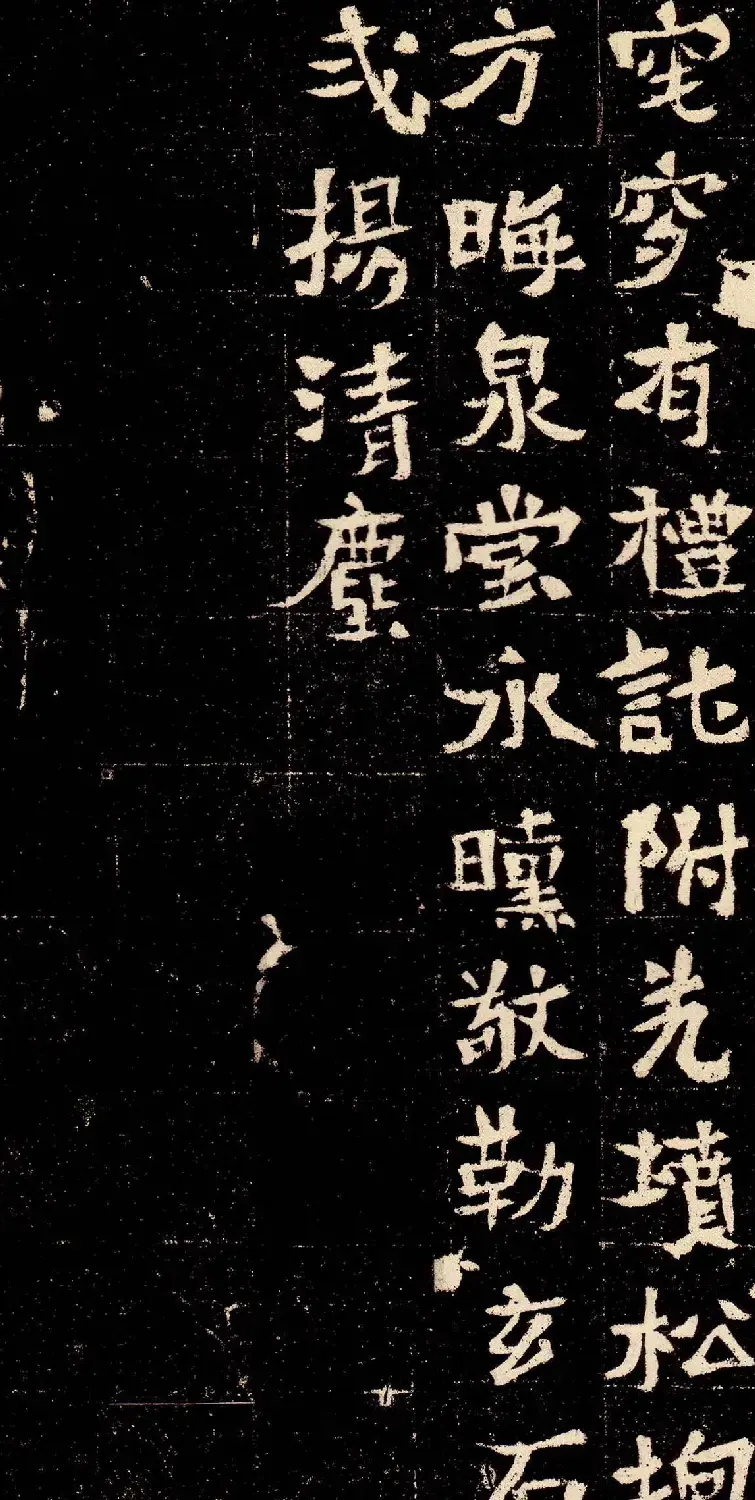 窀穸有禮託附光墳松
方晦泉堂永曛敬勒玄石
式揚清塵